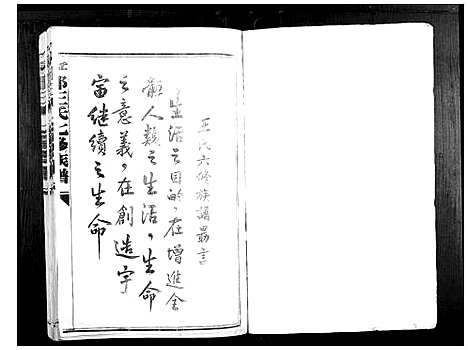 王氏六修族譜勗言
生活之目的，在增進全
體人類之生活，生命
之意義，在創造宇
宙繼續之生命
王氏六修族譜